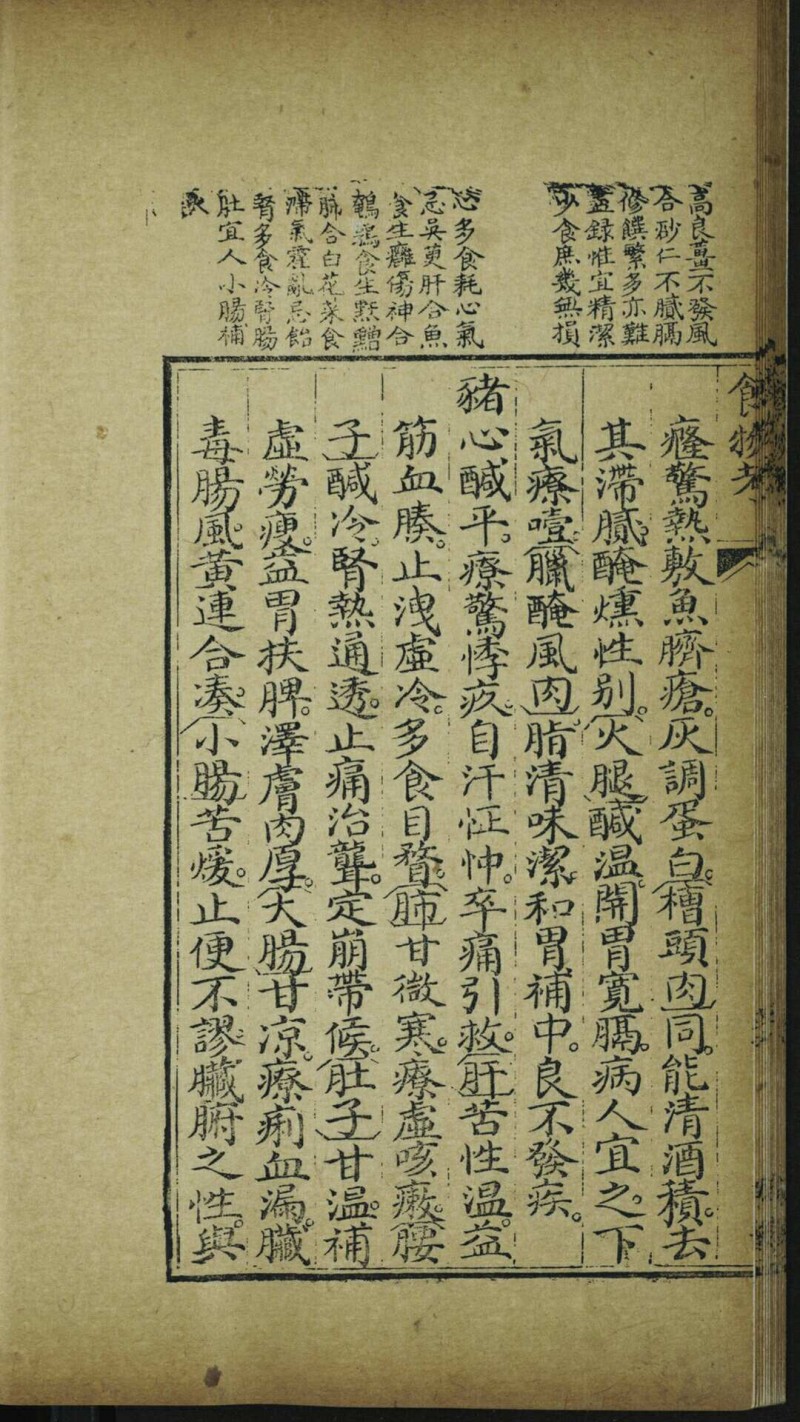 高良薑不發風
合砂仁不膩膈
修饌繁多亦難
盡錄惟宜精潔
少食庶幾無損
心多食耗心氣
忌吳萸肝合魚
食生癰傷神合
鵪鶉食生䵟䵳
肺合白花菜食
滯氣霍亂忌飴
腎多食冷腎腸
肚宜人小腸補
食物考
癃驚熱敷魚臍瘡灰調蛋白糟頭肉同能清酒積去
其滯膩醃燻性别火腿鹹温開胃寬膈病人宜之下
氣療噎臘醃風肉脂清味潔和胃補中良不發疾
豬心鹹平療驚悸疚自汗怔忡卒痛引救肝苦性温益
筋血腠止洩虛冷多食目瞀肺甘微寒療虛咳癥腰
子鹹冷腎熱通透止痛治聾定崩帶候肚子甘温補
虛勞瘦益胃扶脾澤膚肉厚大腸甘凉療痢血漏臟
毒腸風黃連合湊小腸苦煖止便不謬臟腑之性與